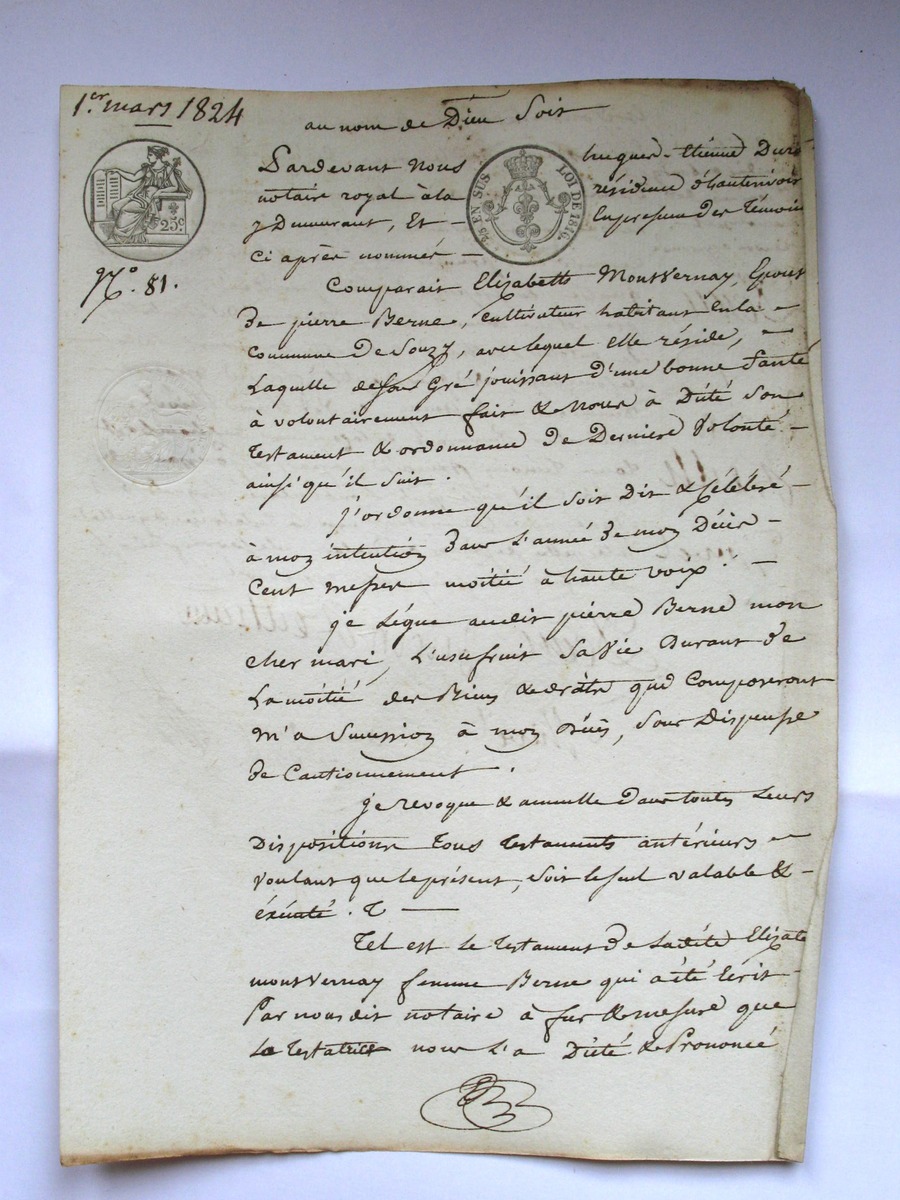 1.er mars 1824
au nom de Dieu Soit
Pardevant Nous hugues-Etienne Duré
notaire royal à la résidence d'hauterivoir
y Demeurant, Et - En presence des Témoins
Ci après nommés -
1/4 EN SUS LOI DE 1816.
25c
N.º 81.
Comparait Elizabeth Montvernay, Epouse
de pierre Berne, Cultivateur habitant En la -
Commune De Souzy, avec lequel elle réside, -
Laquelle de son Gré jouissant d'une bonne Santé
à volontairement fait & Nous à Dicté Son
Testament & ordonnance de Derniere Volonté -
ainsi qu'il Suit.
j'ordonne qu'il Soit Dit & Célébré -
à mon intention dans l'année de mon Décès -
Cent messes moitié à haute voix. -
je Légue audit pierre Berne mon
cher mari, L'usufruit Sa Vie Durant de
La moitié des Biens & droits qui Composeront
M'a Succession à mon Décès, Sous Dispense
de Cautionnement.
je revoque & annulle dans toutes Leurs
Dispositions Tous Testaments antérieurs -
Voulant que le présent, Soit le Seul valable & -
éxécuté. -
Tel est le Testament de Ladite Elizabeth
montvernay femme Berne qui a été Ecrit -
Par nous dit notaire à fur & mesure que
La Testatrice nous L'a Dicté & Prononcé